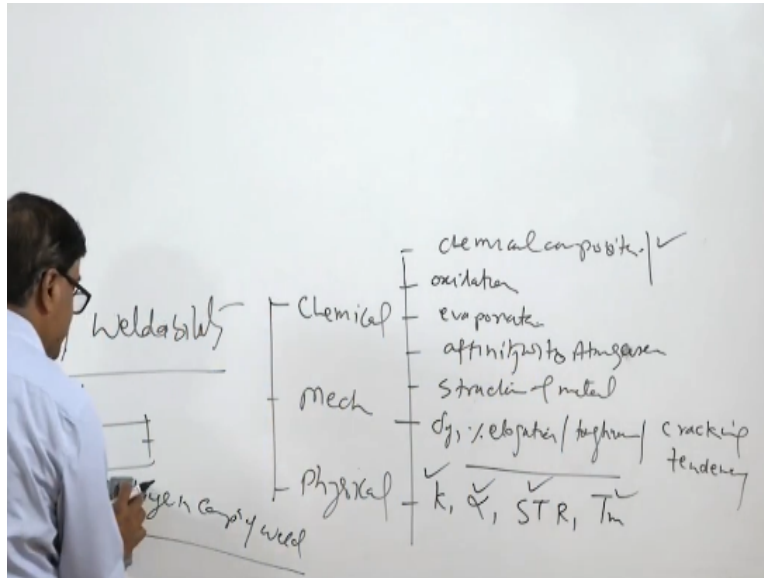 Weldability
Chemical
Mech
Physical
chemical composition/ ✓
oxidation
evaporation
affinity with Atm gases
structure of metal
σy, % elogation / toughness / cracking
tendency
k, α, STR, Tm